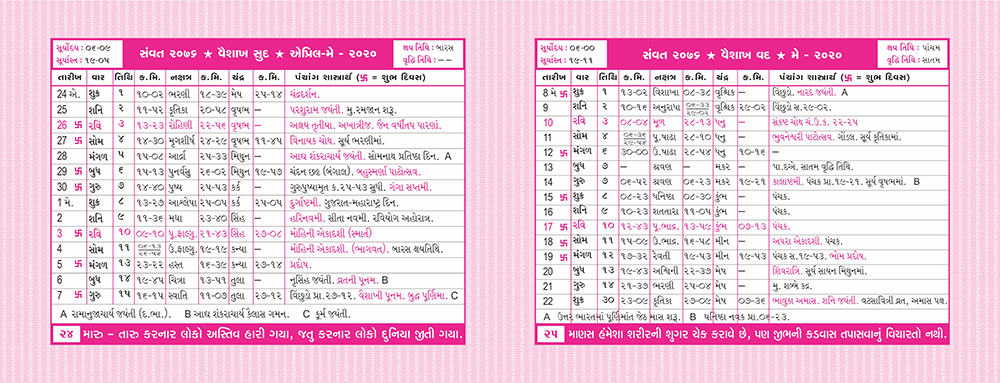 સૂર્યોદય: ૦૬-૦૯ સંવત ૨૦૭૬ ★ વૈશાખ સુદ ★ એપ્રિલ-મે - ૨૦૨૦ ક્ષય તિથિ : બારસ
સૂર્યાસ્ત: ૧૯-૦૫ વૃદ્ધિ તિથિ : --
તારીખ વાર તિથિ ક.મિ. નક્ષત્ર ક.મિ. ચંદ્ર ક.મિ. પંચાંગ શાસ્ત્રાર્થ (卐 = શુભ દિવસ)
24 એ. શુક્ર ૧ ૧૦-૦૨ ભરણી ૧૮-૩૯ મેષ ૨૫-૧૪ ચંદ્રદર્શન.
25 શનિ ૨ ૧૧-૫૨ કૃતિકા ૨૦-૫૮ વૃષભ – પરશુરામ જયંતી. મુ.રમજાન શરૂ.
26 卐 રવિ ૩ ૧૩-૨૩ રોહિણી ૨૨-૫૬ વૃષભ – અક્ષય તૃતીયા. અખાત્રીજ. જૈન વર્ષીતપ પારણાં.
27 卐 સોમ ૪ ૧૪-૩૦ મૃગશીર્ષ ૨૪-૨૯ વૃષભ ૧૧-૪૫ વિનાયક ચોથ. સૂર્ય ભરણીમાં.
28 મંગળ ૫ ૧૫-૦૮ આર્દ્રા ૨૫-૩૩ મિથુન – આદ્ય શંકરાચાર્ય જયંતી. સોમનાથ પ્રતિષ્ઠા દિન. A
29 卐 બુધ ૬ ૧૫-૧૩ પુનર્વસુ ૨૬-૦૨ મિથુન ૧૯-૫૭ ચંદન છઠ્ઠ (બંગાળ). બહુસ્મર્ણા પાટોત્સવ.
30 卐 ગુરુ ૭ ૧૪-૪૦ પુષ્ય ૨૫-૫૩ કર્ક – ગુરુપુષ્યામૃત ક.૨૫-૫૩ સુધી. ગંગા સપ્તમી.
1 મે. શુક્ર ૮ ૧૩-૨૭ આશ્લેષા ૨૫-૦૫ કર્ક ૨૫-૦૫ દુર્ગાષ્ટમી. ગુજરાત-મહારાષ્ટ્ર દિન.
2 શનિ ૯ ૧૧-૩૬ મઘા ૨૩-૪૦ સિંહ – હરિનવમી. સીતા નવમી. રવિયોગ અહોરાત્ર.
3 卐 રવિ ૧૦ ૦૯-૧૦ પૂ.ફાલ્ગુ. ૨૧-૪૩ સિંહ ૨૭-૦૮ મોહિની એકાદશી (સ્માર્ત)
4 સોમ ૧૧ ૦૬-૧૩ ૨૬-૫૪ ઉ.ફાલ્ગુ. ૧૯-૧૯ કન્યા – મોહિની એકાદશી. (ભાગવત). બારસ ક્ષયતિથિ.
5 卐 મંગળ ૧૩ ૨૩-૨૨ હસ્ત ૧૬-૩૯ કન્યા ૨૭-૧૪ પ્રદોષ.
6 બુધ ૧૪ ૧૯-૪૫ ચિત્રા ૧૩-૫૧ તુલા – નૃસિંહ જયંતી. વ્રતની પૂનમ. B
7 卐 ગુરુ ૧૫ ૧૬-૧૫ સ્વાતિ ૧૧-૦૭ તુલા ૨૭-૧૨ વિંછુડો પ્રા.૨૭-૧૨. વૈશાખી પૂનમ. બુદ્ધ પૂર્ણિમા. C
A રામાનુજાચાર્ય જયંતી (દ.ભા.). B આદ્ય શંકરાચાર્ય કૈલાસ ગમન. C કૂર્મ જયંતી.
૨૪ મારુ – તારુ કરનાર લોકો અસ્તિવ હારી ગયા, જતુ કરનાર લોકો દુનિયા જીતી ગયા.
સૂર્યોદય: ૦૬-૦૦ સંવત ૨૦૭૬ ★ વૈશાખ વદ ★ મે - ૨૦૨૦ ક્ષય તિથિ : પાંચમ
સૂર્યાસ્ત: ૧૯-૧૧ વૃદ્ધિ તિથિ : સાતમ
તારીખ વાર તિથિ ક.મિ. નક્ષત્ર ક.મિ. ચંદ્ર ક.મિ. પંચાંગ શાસ્ત્રાર્થ (卐 = શુભ દિવસ)
8 મે 卐 શુક્ર ૧ ૧૩-૦૨ વિશાખા ૦૮-૩૮ વૃશ્ચિક – વિંછુડો. નારદ જયંતી. A
9 શનિ ૨ ૧૦-૧૬ અનુરાધા ૦૬-૩૩ ૨૯-૦૨ વૃશ્ચિક ૨૯-૦૨ વિંછુડો સ.૨૯-૦૨.
10 રવિ ૩ ૦૮-૦૪ મૂળ ૨૮-૧૩ ધનુ – સંકષ્ટ ચોથ ચં.ઉ.ક. ૨૨-૨૫
11 સોમ ૪ ૦૬-૩૬ ૨૯-૫૪ પૂ.ષાઢા ૨૮-૧૦ ધનુ – ભુવનેશ્વરી પાટોત્સવ. ગોંડલ. સૂર્ય કૃતિકામાં.
12 卐 મંગળ ૬ ૩૦-૦૦ ઉ.ષાઢા ૨૮-૫૪ ધનુ ૧૦-૧૬ –
13 બુધ ૭ – શ્રવણ – મકર – પા.દએ. સાતમ વૃદ્ધિ તિથિ.
14 卐 ગુરુ ૭ ૦૬-૫૨ શ્રવણ ૦૬-૨૩ મકર ૧૯-૨૧ કાલાષ્ટમી. પંચક પ્રા.૧૯-૨૧. સૂર્ય વૃષભમાં. B
15 卐 શુક્ર ૮ ૦૮-૨૩ ધનિષ્ઠા ૦૮-૩૦ કુંભ – પંચક.
16 શનિ ૯ ૧૦-૨૩ શતતારા ૧૧-૦૫ કુંભ – પંચક.
17 卐 રવિ ૧૦ ૧૨-૪૩ પૂ.ભાદ્ર. ૧૩-૫૯ કુંભ ૦૭-૧૩ પંચક.
18 卐 સોમ ૧૧ ૧૫-૦૯ ઉ.ભાદ્ર. ૧૬-૫૮ મીન – અપરા એકાદશી. પંચક.
19 卐 મંગળ ૧૨ ૧૭-૩૨ રેવતી ૧૯-૫૩ મીન ૧૯-૫૩ પંચક સ.૧૯-૫૩. ભોમ પ્રદોષ.
20 બુધ ૧૩ ૧૯-૪૩ અશ્વિની ૨૨-૩૭ મેષ – શિવરાત્રિ. સૂર્ય સાયન મિથુનમાં.
21 ગુરુ ૧૪ ૨૧-૩૯ ભરણી ૨૫-૦૪ મેષ – મુ. શબ્બે કદ્ર.
22 શુક્ર ૩૦ ૨૩-૦૯ કૃતિકા ૨૭-૦૯ મેષ ૦૭-૩૬ ભાવુકા અમાસ. શનિ જયંતી. વટસાવિત્રી વ્રત, અમાસ પક્ષ.
A ઉત્તર ભારતમાં પૂર્ણિમાંત જેઠ માસ શરૂ. B ધનિષ્ઠા નવક પ્રા.૦૬-૨૩.
૨૫ માણસ હંમેશા શરીરની શુગર ચેક કરાવે છે, પણ જીભની કડવાસ તપાસવાનું વિચારતો નથી.